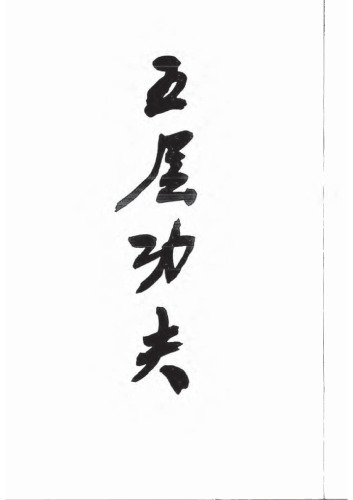 五层功夫